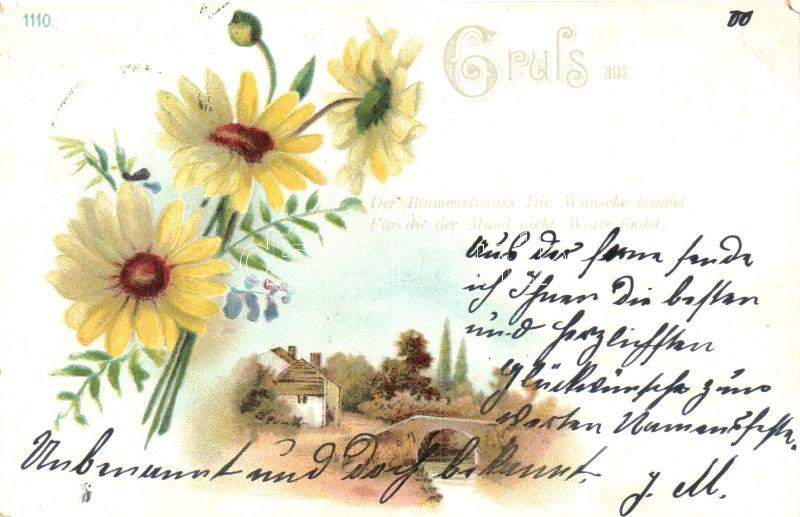 1110.
Gruss aus
Der Blumenstrauss Dir Wünsche kündet
Für die der Mund nicht Worte findet.
Aus der Ferne sende
ich Ihnen die besten
und herzlichsten
Glückwünsche zum
werten Namensfeste.
Unbenannt und doch bekannt.
J. M.